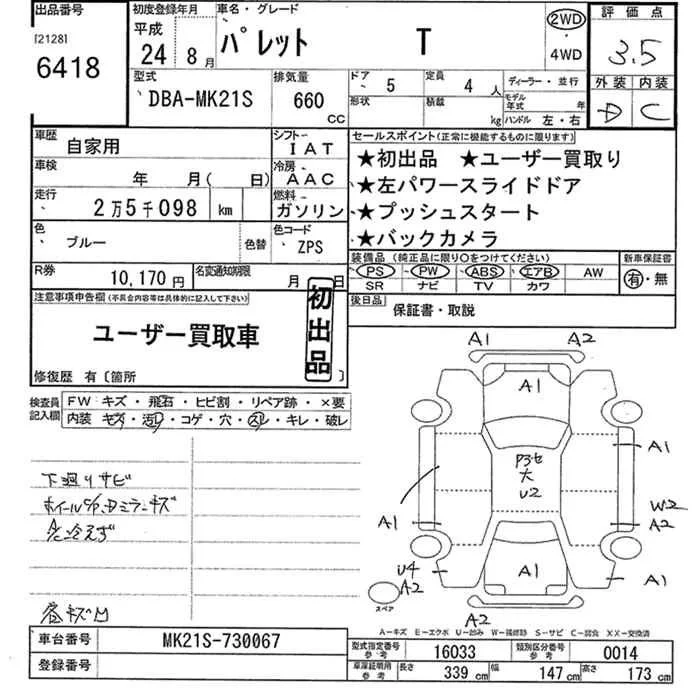 出品番号
[2128]
6418
初度登録年月
平成
24 8月
車名・グレード
パレット T
2WD
・
4WD
評価点
3.5
外装 内装
D C
型式
DBA-MK21S
排気量
660
CC
ドア 5
定員 4 人
形状
積載 kg
ディーラー・並行
モデル年式 年
ハンドル 左・右
車歴
自家用
シフト
IAT
車検
年 月( 日)
冷房
AAC
走行
2万5千098 km
燃料
ガソリン
色
ブルー
色替
色コード
ZPS
R券
10,170円
名変通知期限
月 日
セールスポイント(正常に機能するものに限ります)
★初出品 ★ユーザー買取り
★左パワースライドドア
★プッシュスタート
★バックカメラ
装備品 (純正品に限り○をつけてください)
PS PW ABS エアB AW
SR ナビ TV カワ
新車保証書
有・無
後日品
保証書・取説
注意事項申告欄(不具合内容等は具体的に記入して下さい)
ユーザー買取車
初出品
修復歴 有〔箇所 〕
検査員
記入欄
FW キズ・飛石・ヒビ割・リペア跡・×要
内装 キズ・汚れ・コゲ・穴・スレ・キレ・破レ
下廻りサビ
A1 A2
A1
A1
P3セ
大
U2
W2
A2
A1
U4
A2
A1
A1
A2
スペア
A-キズ E-エクボ U-凹み W-補修跡 S-サビ C-腐食 XX-交換済
車台番号
MK21S-730067
登録番号
型式指定番号
参考
16033
類別区分番号
参考
0014
車庫証明用
参考
長さ 339 cm
幅 147 cm
高さ 173 cm